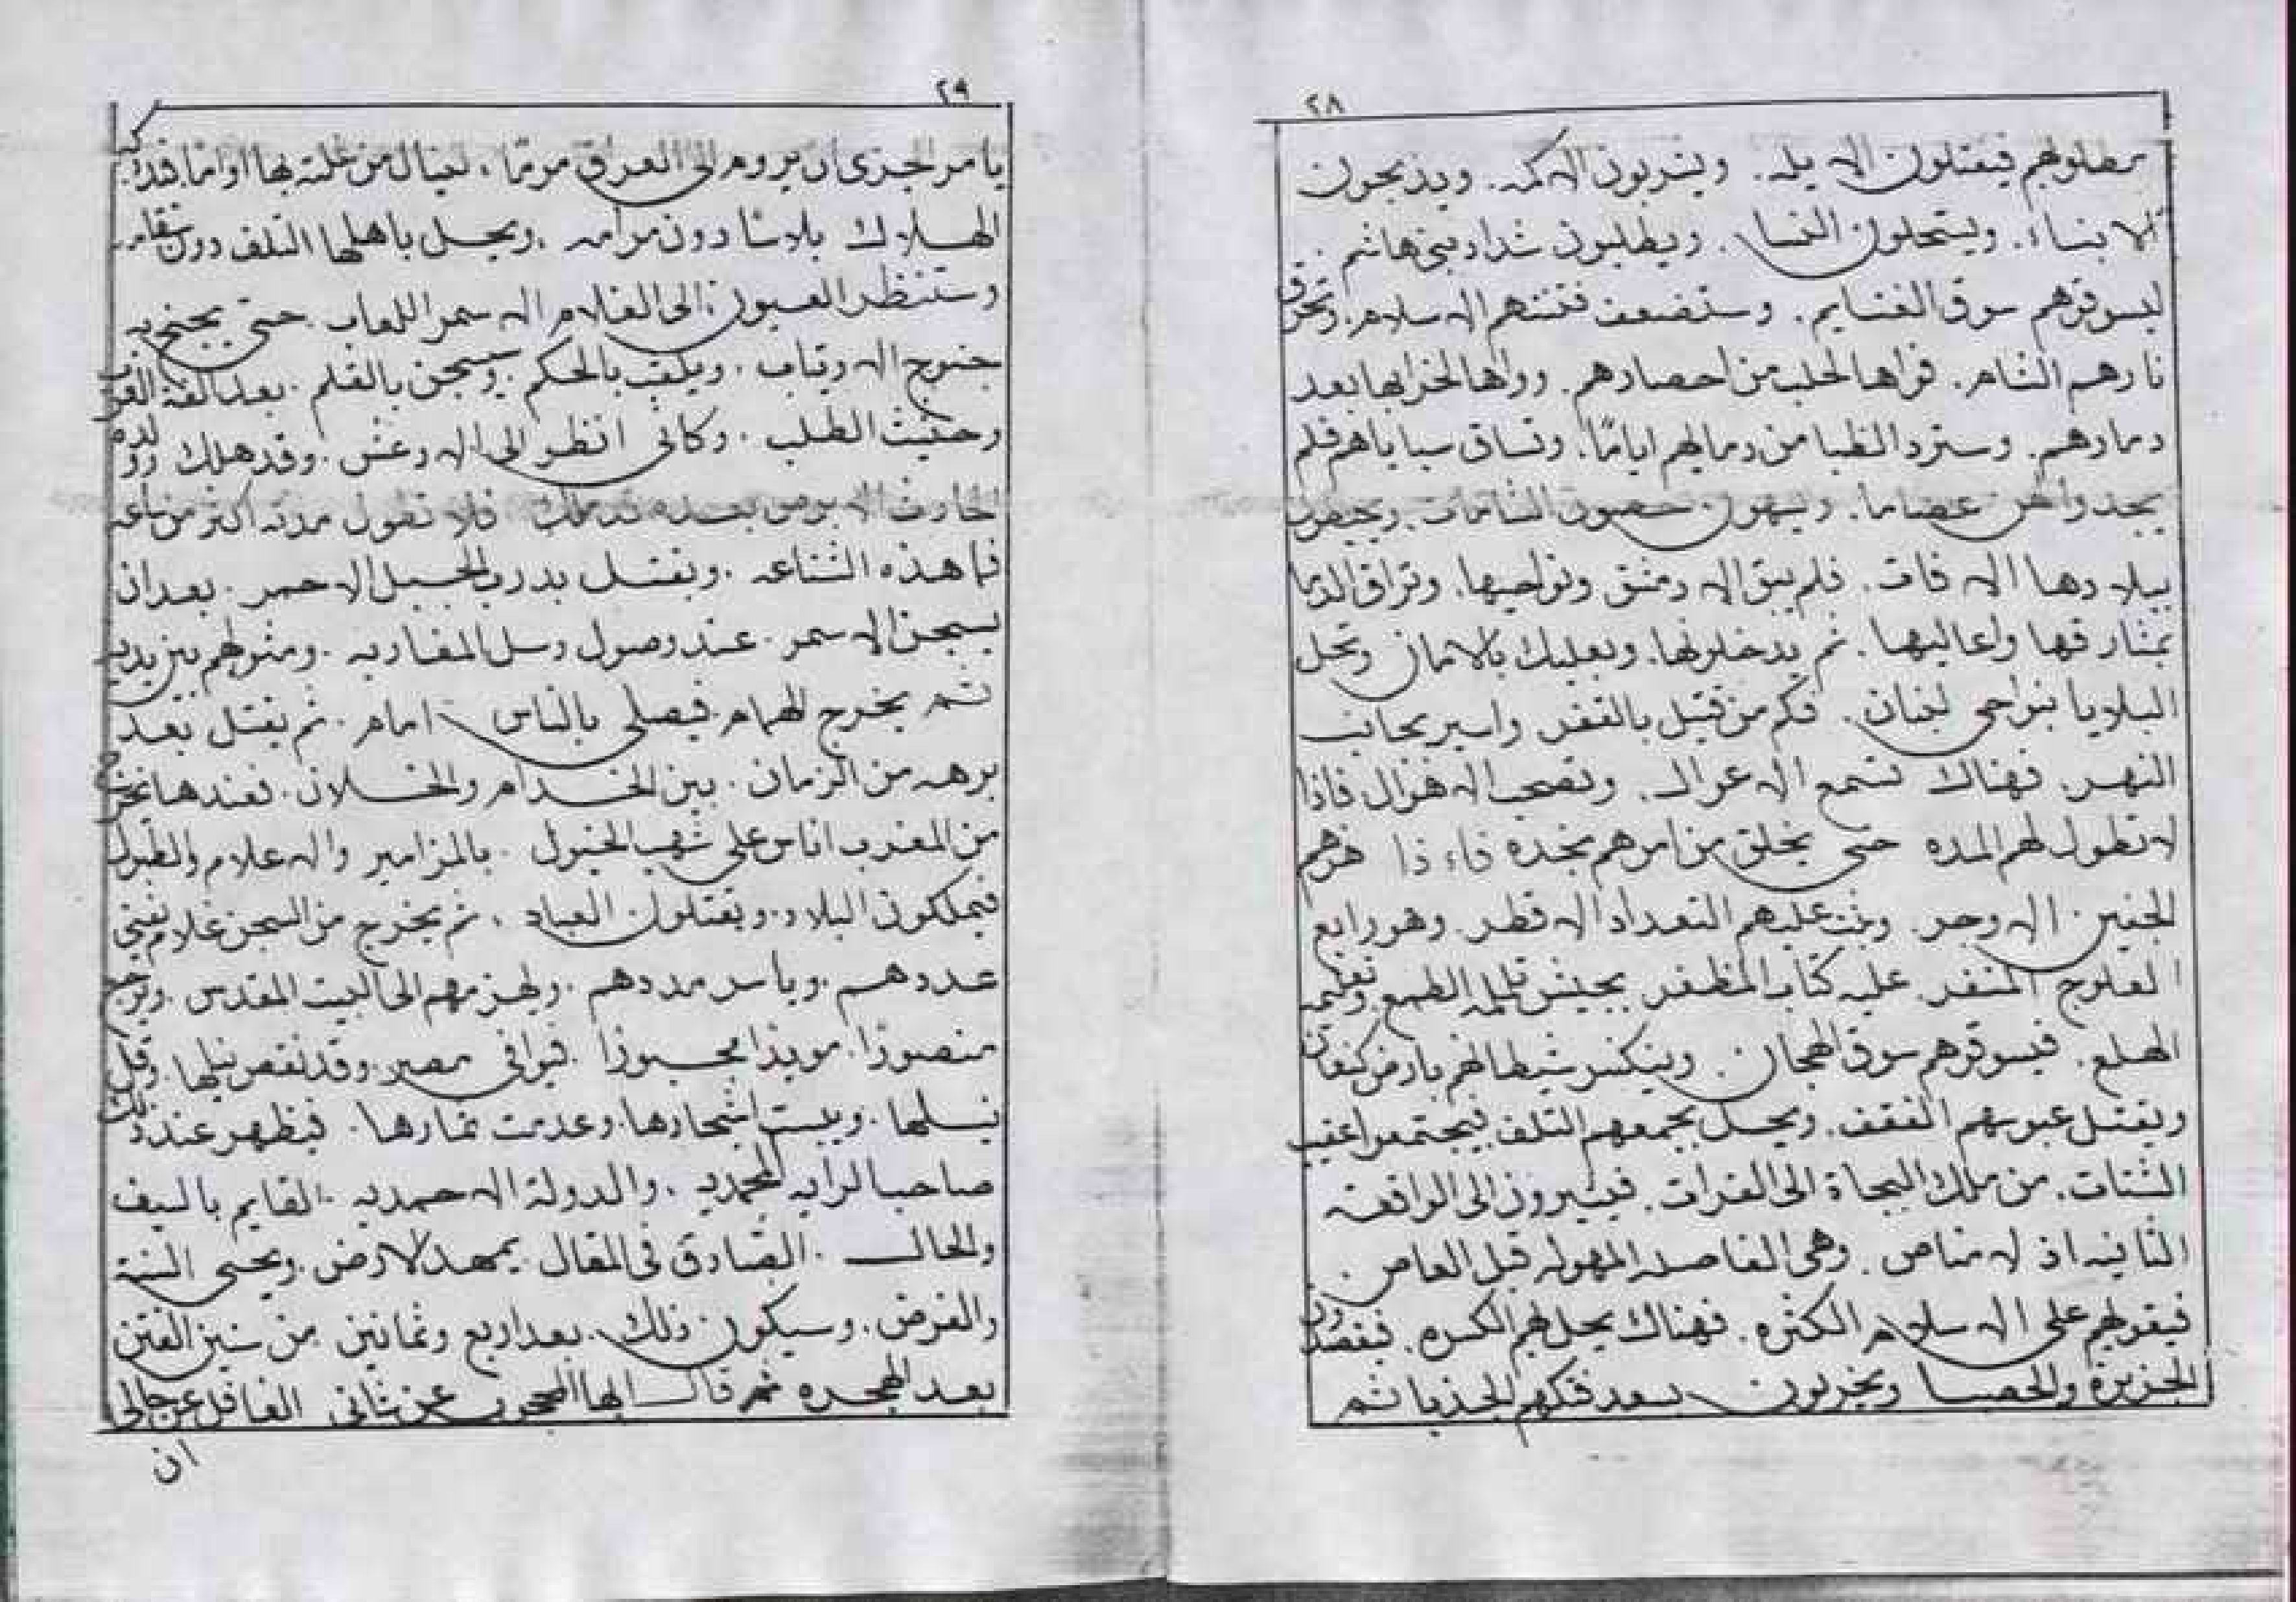 ٢٨
فيقتلون الايله. ويخربون الاكمه. ويذبحون
الابناء. ويستحلون النسا. ويطلبون شداد بنى هاشم.
ليسوقوهم سوق الغنايم. وستضعف فتنتهم الاسلام. وتحرق
نارهم الشام. فواها لحلب من احصارهم. وواها لخرابها بعد
دمارهم. وسترد الظبا من دمايهم اياما. وتساق سباياهم فلم
يجدوا لهن عصاما. حصون الشامات.
ببلادها الافات. فلم يبق الا دمشق ونواحيها. وتراق الدما
بمشارقها واعاليها. ثم يدخلونها. وبعلبك بالامان وتحل
البلايا بنواحى لبنان. فكم من قتيل بالقفر واسير بجانب
النهر. فهناك تسمع الاعوال. وتصحب الاهوال فاذا
لا تطول لهم المده حتى يخلق من امرهم بخده فاء ذا هزمهم
الاوجر. وثب عليهم التعداد الاقطر. وهو رابع
العلوج المنفر عليه كتاب المظفر بجيش الطمع
الهلع. فيسوقهم سوق الهجان. وينكس شيطانهم بارض كنعان
ويقتل عبوسهم القفقف. ويحل بجمعهم التلف فيجتمعوا عقيب
الشتات. من ملك النجاة الى الفرات. فيسيرون الى الواقعه
الثانيه اذ لا مناص. وهى الفاصله المهوله قبل العاص.
على الاسلام الكثره. فهناك يحل لهم الكسره. فيقصدون
الجزيرة والحصبا ويخربون بعد فتكهم ثم
٢٩
يا من الى العراق
الهلاك بلاشا دون مرامه. ويحل باهلها التلف دون
وستنظر العيون الى الغلام الاسمر اللعاب. حتى يجنح به
جنوح الارتياب. ويلقب بالحكم. وسيسجن بالقلم. بعد الفة العرب
وحثيث الطلب. وكانى انظر الى الارعش. وقد هلك ولده
الحارث الابرص بعده فلا تطول مدته اكثر من ساعه
فما هذه الشناعه. ويقتل بدرب الجبل الاحمر. بعد ان
يسجن الاسمر. عند وصول رسل المغاربه. ومثولهم بين يديه
ثم يخرج الهمام فيصلى بالناس امام. ثم يقتل بعد
برهه من الزمان. بين الخدام والخلان. فعندها يخرج
من المغرب اناس على شهب الخيول. بالمزامير والاعلام والطبول
فيملكون البلاد. ويقتلون العباد. ثم يخرج من السجن غلام يفنى
عددهم. وياسر مددهم. ويهزمهم الى البيت المقدس. ويرجع
منصورا. مويدا محبورا. فيوافى مصر. وقد نقص نيلها. وقل
نيلها. ويبست اشجارها. وعدمت ثمارها. فيظهر عند ذلك
صاحب الرايه المحمديه. والدولة الاحمديه. القايم بالسيف
والحال. الصادق فى المقال. يمهد الارض. ويحيى السنة
والفرض. وسيكون ذلك. بعد اربع وثمانين من سنين الفتن
بعد الهجره ثم قال ايها المحجوب عن شانى الغافل عن حالى
ان